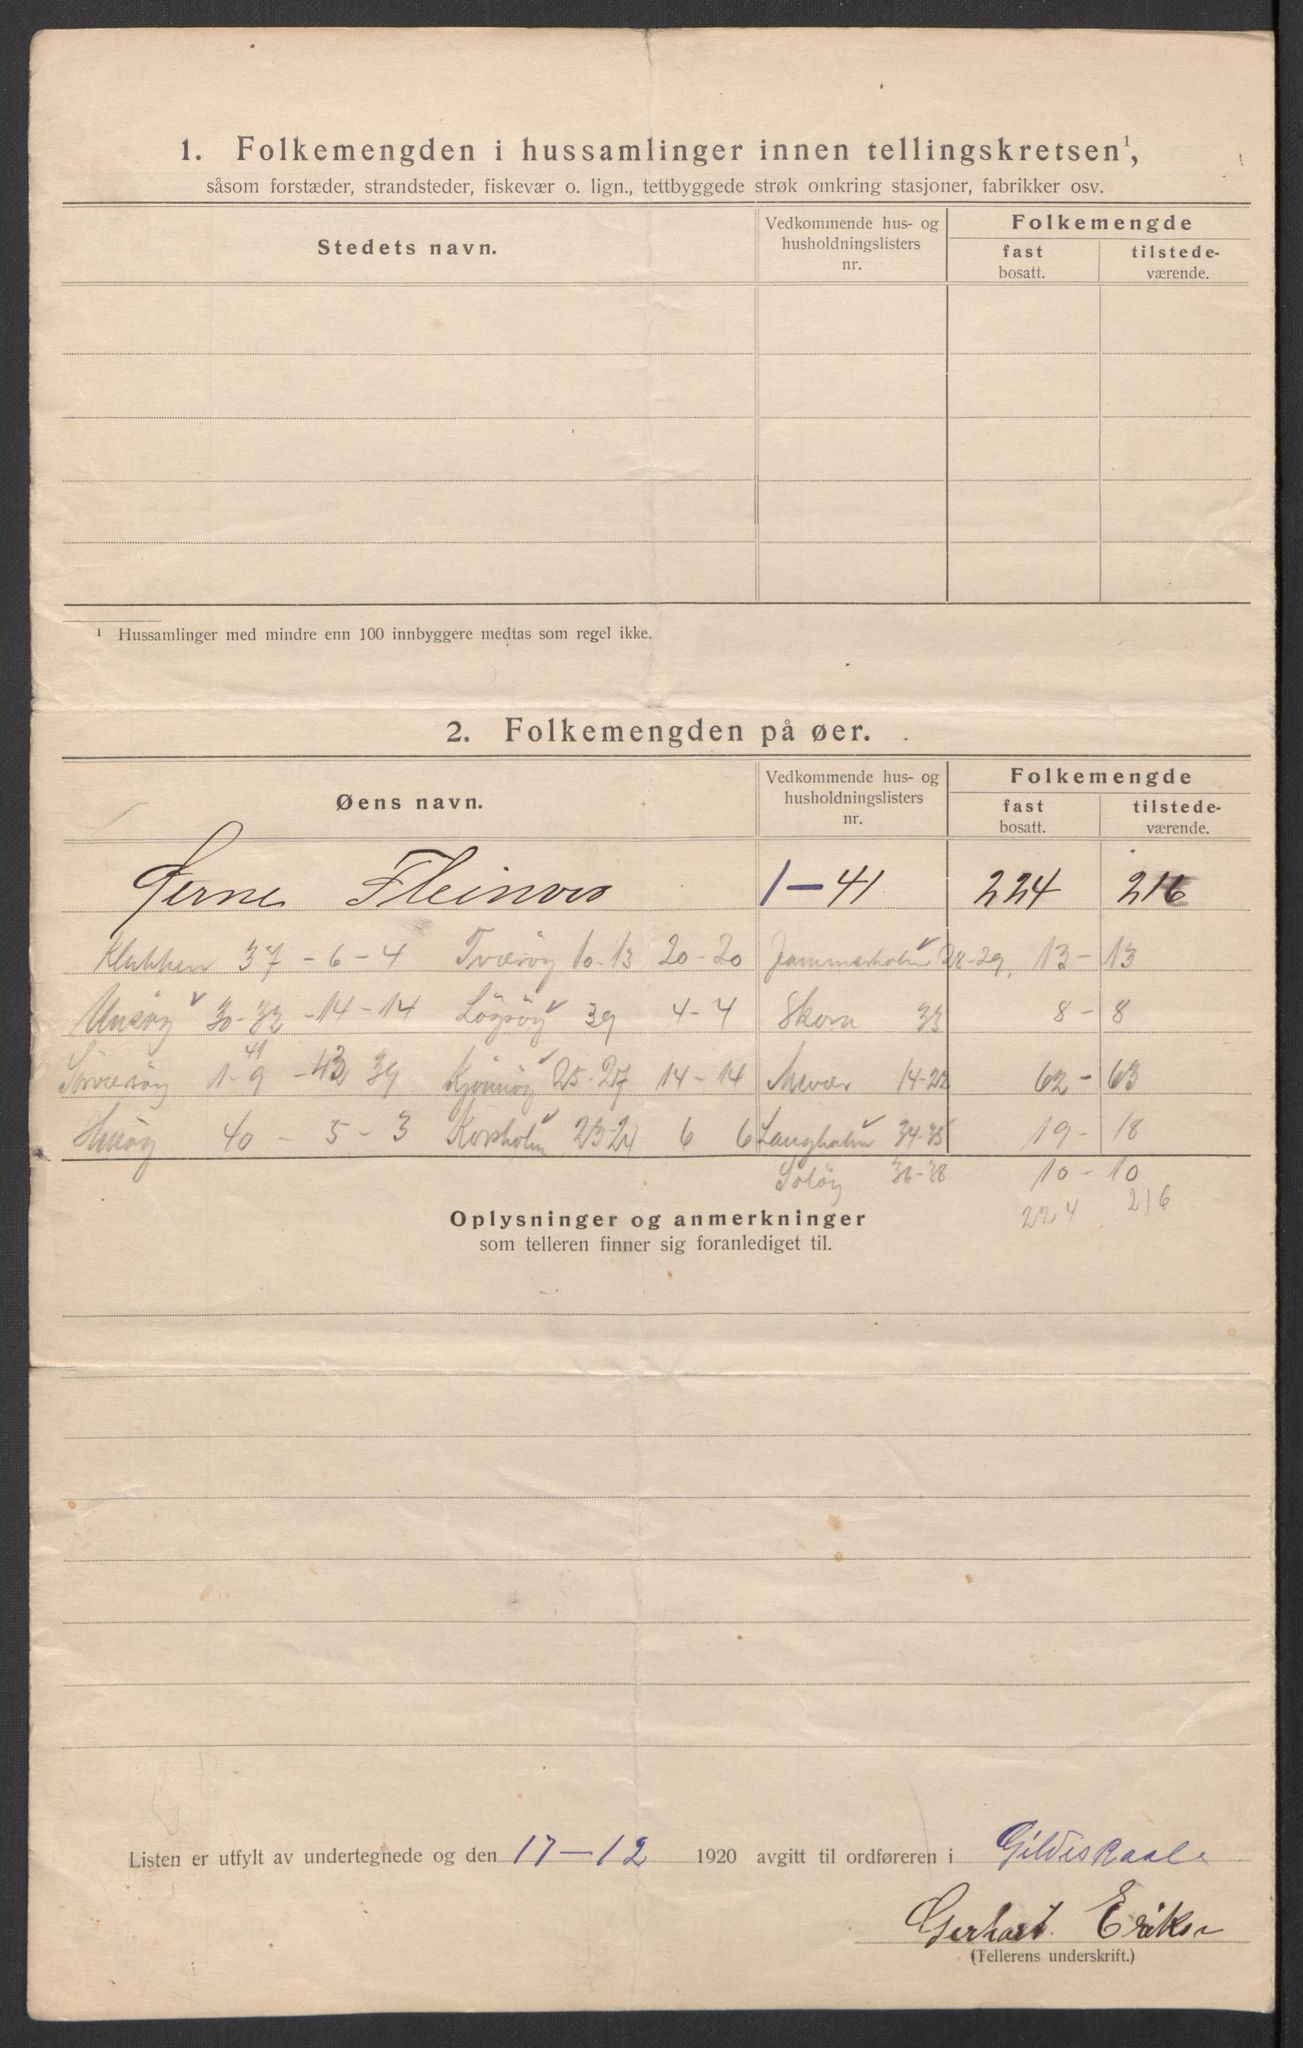 1. Folkemengden i hussamlinger innen tellingskretsen¹,
såsom forstæder, strandsteder, fiskevær o. lign., tettbyggede strøk omkring stasjoner, fabrikker osv.
Stedets navn.
Vedkommende hus- og husholdningslisters nr.
Folkemengde
fast bosatt.
tilstede-værende.
¹ Hussamlinger med mindre enn 100 innbyggere medtas som regel ikke.
2. Folkemengden på øer.
Øens navn.
Vedkommende hus- og husholdningslisters nr.
Folkemengde
fast bosatt.
tilstede-værende.
Øerne Fleinvær 1-41 224 216
Klukken 37 - 6 - 4 Tværøy 10-13 20-20 Jommerholm 28-29 13 - 13
30-32 - 14 - 14 39 4-4 33 8 - 8
Sørværøy 1-9 41 39 Kjønnøy 25-27 14-14 14-22 62 - 63
Husøy 40 - 5 - 3 Korsholm 23-24 6 6 Langholm 34-35 19 - 18
Soløy 36-38 10 - 10
224 216
Oplysninger og anmerkninger
som telleren finner sig foranlediget til.
Listen er utfylt av undertegnede og den 17-12 1920 avgitt til ordføreren i Gildeskaal.
Gerhart Eriksen
(Tellerens underskrift.)